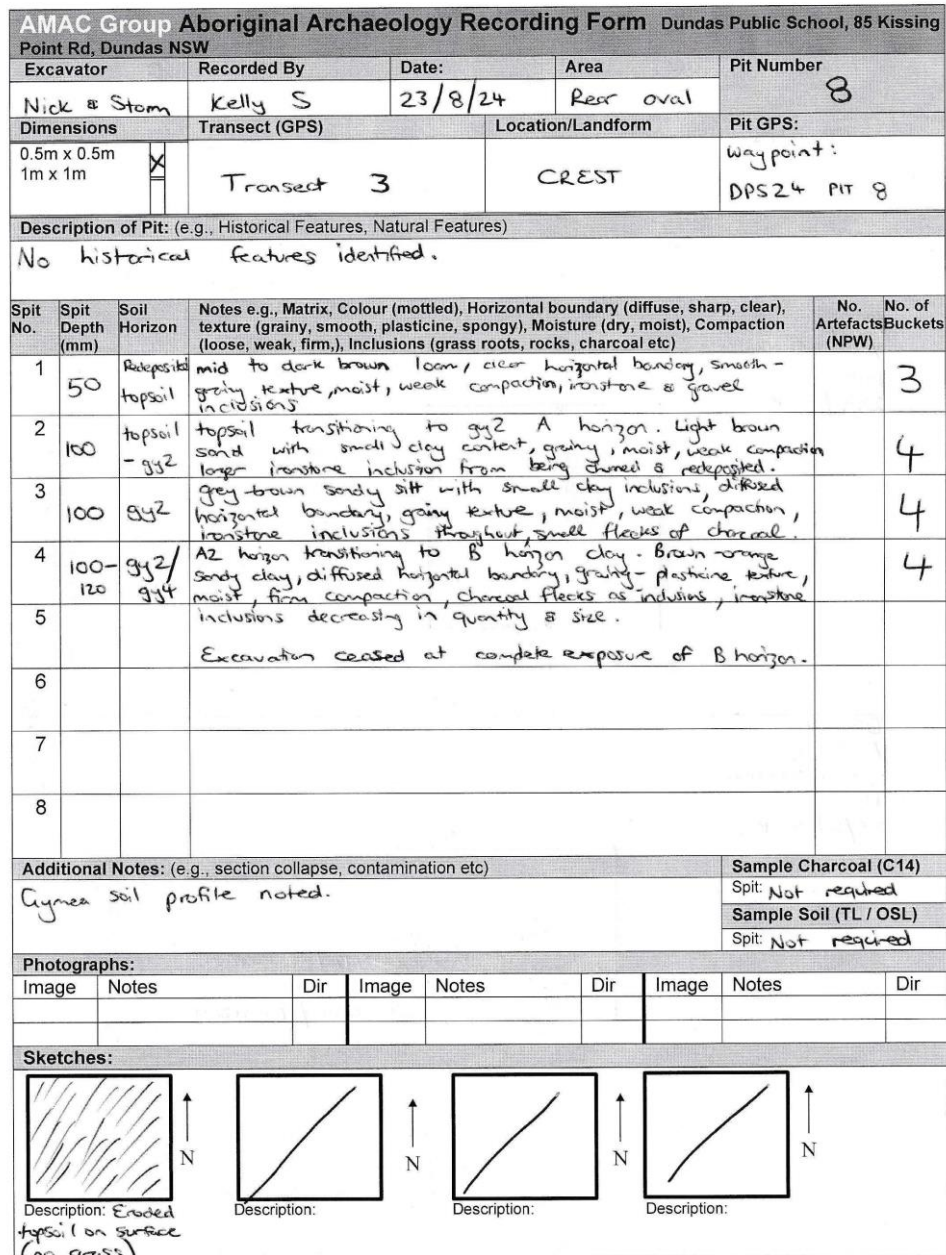 AMAC Group Aboriginal Archaeology Recording Form Dundas Public School, 85 Kissing
Point Rd, Dundas NSW
Excavator Recorded By Date: Area Pit Number
Nick & Storm Kelly S 23/8/24 Rear oval 8
Dimensions Transect (GPS) Location/Landform Pit GPS:
0.5m x 0.5m X
1m x 1m
Transect 3
CREST
Waypoint:
DPS24 PIT 8
Description of Pit: (e.g., Historical Features, Natural Features)
No historical features identified.
Spit No. Spit Depth (mm) Soil Horizon Notes e.g., Matrix, Colour (mottled), Horizontal boundary (diffuse, sharp, clear), texture (grainy, smooth, plasticine, spongy), Moisture (dry, moist), Compaction (loose, weak, firm,), Inclusions (grass roots, rocks, charcoal etc) No. Artefacts (NPW) No. of Buckets
1 50 Redeposited topsoil mid to dark brown loam, clear horizontal bondary, smooth-
grainy texture, moist, weak compaction, ironstone & gravel
inclusions 3
2 100 topsoil - gy2 topsoil transitioning to gy2 A horizon. Light brown
sand with small clay content, grainy, moist, weak compaction
larger ironstone inclusion from being churned & redeposited. 4
3 100 gy2 grey-brown sandy silt with small clay inclusions, diffused
horizontal bondary, grainy texture, moist, weak compaction,
ironstone inclusions throughout, small flecks of charcoal. 4
4 100-120 gy2/gy4 A2 horizon transitioning to B horizon clay. Brown-orange
sandy clay, diffused horizontal bondary, grainy-plasticine texture,
moist, firm compaction, charcoal flecks as inclusions, ironstone 4
5 inclusions decreasing in quantity & size.
Excavation ceased at complete exposure of B horizon.
6
7
8
Additional Notes: (e.g., section collapse, contamination etc)
Gymea soil profile noted.
Sample Charcoal (C14)
Spit: Not required
Sample Soil (TL / OSL)
Spit: Not required
Photographs:
Image Notes Dir Image Notes Dir Image Notes Dir
Sketches:
N N N N
Description: Eroded
topsoil on surface
(no grass)
Description:
Description:
Description: